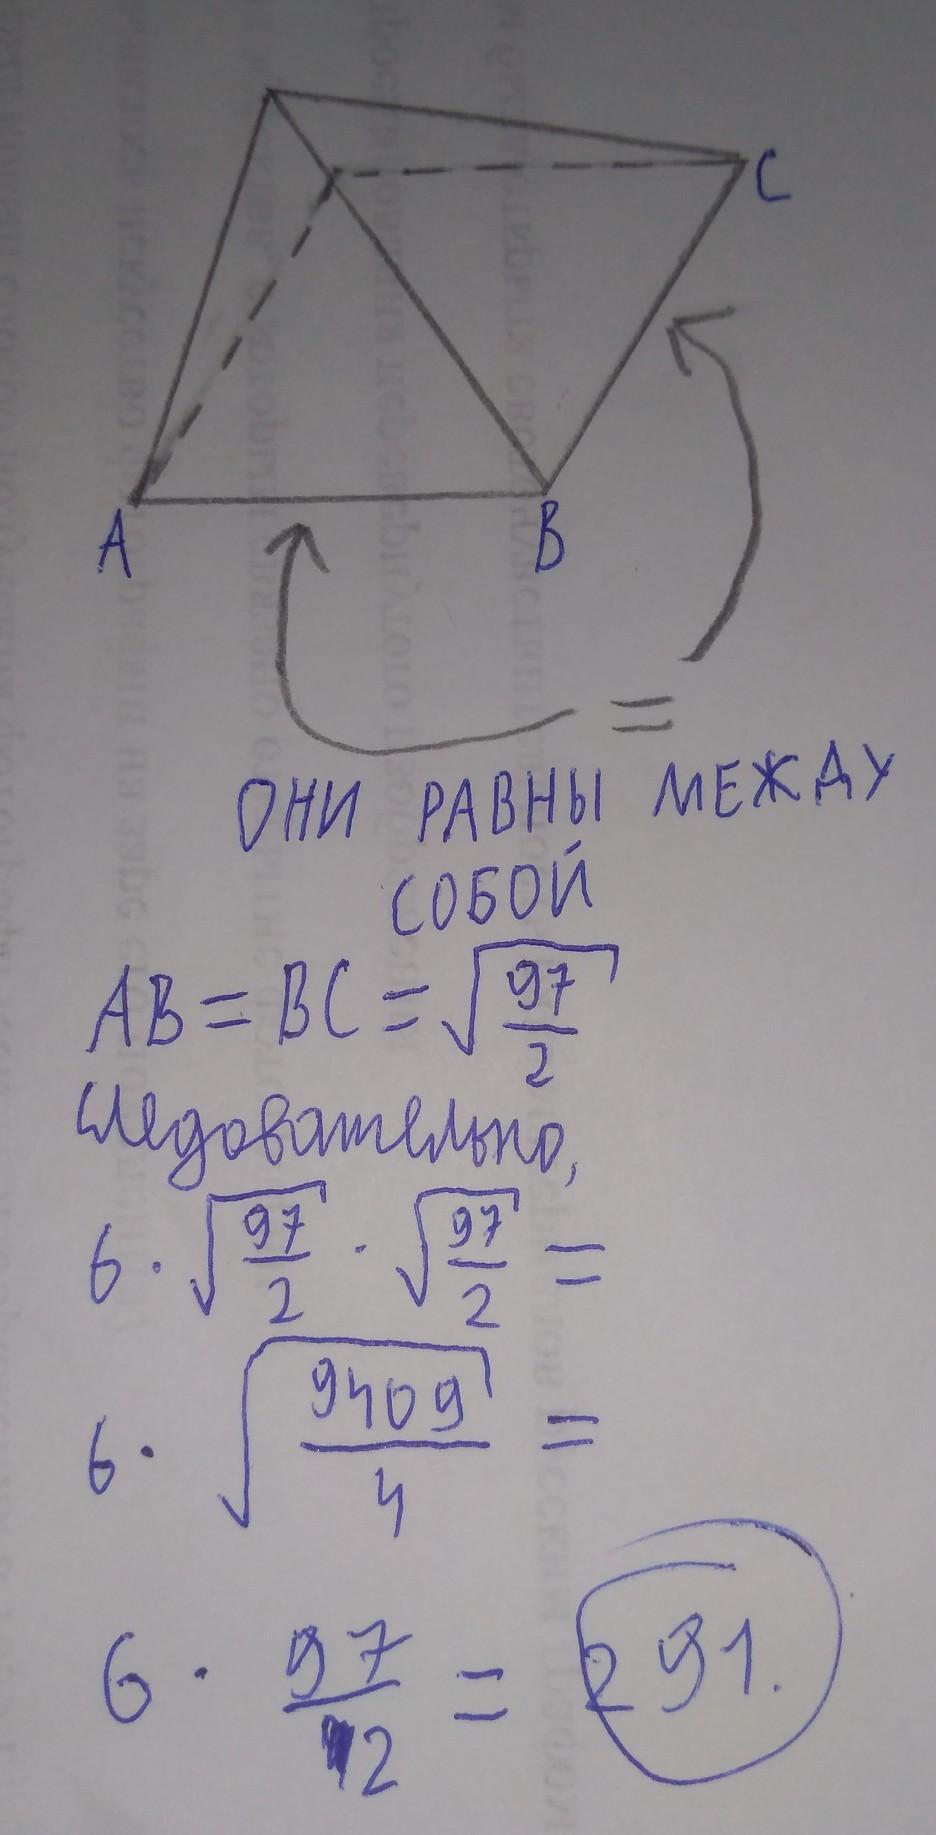 C
A
B
=
ОНИ РАВНЫ МЕЖДУ
СОБОЙ
AB = BC = √(97/2)
Следовательно,
6 · √(97/2) · √(97/2) =
6 · √(9409/4) =
6 · 97/2 = 291.